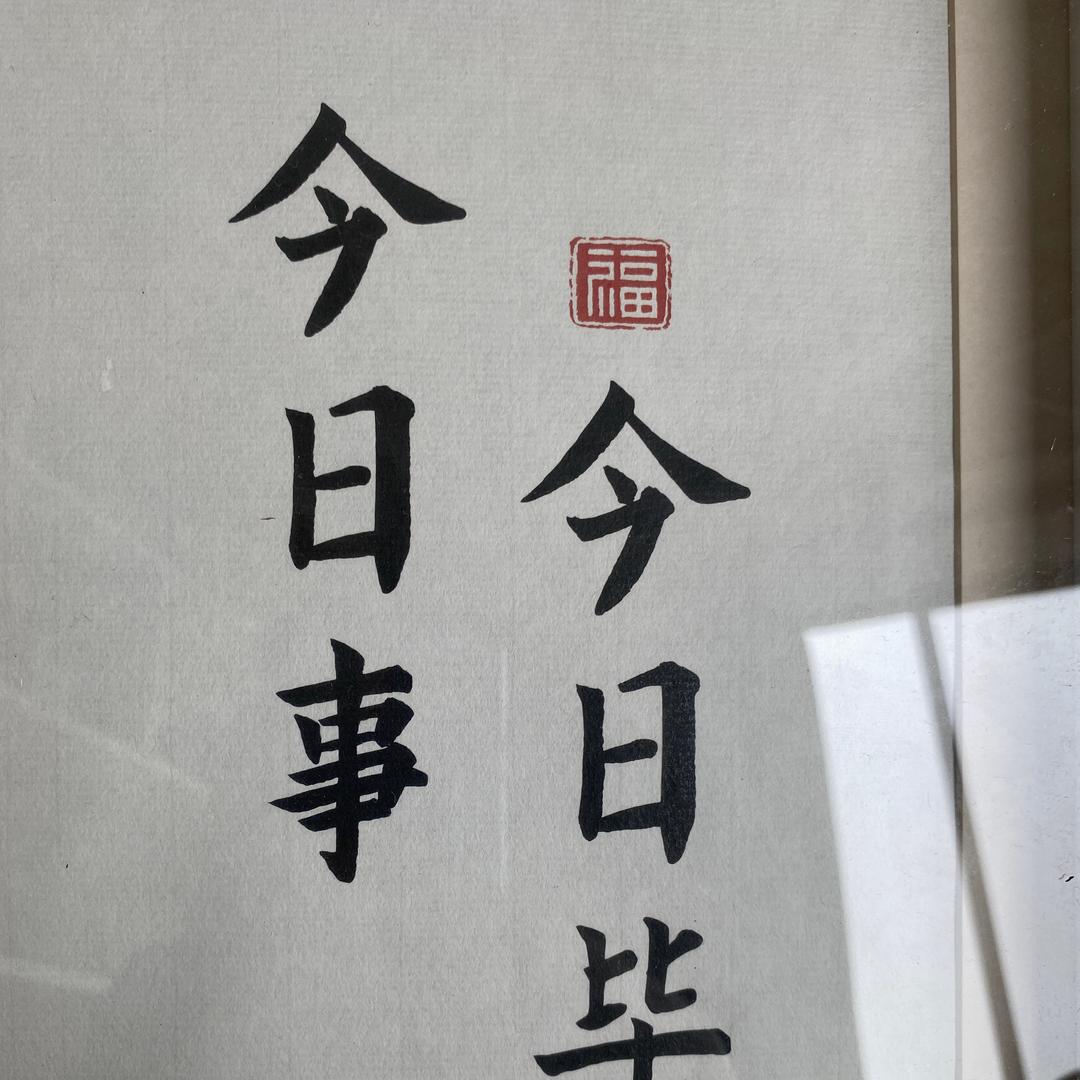 今日事
福
今日毕